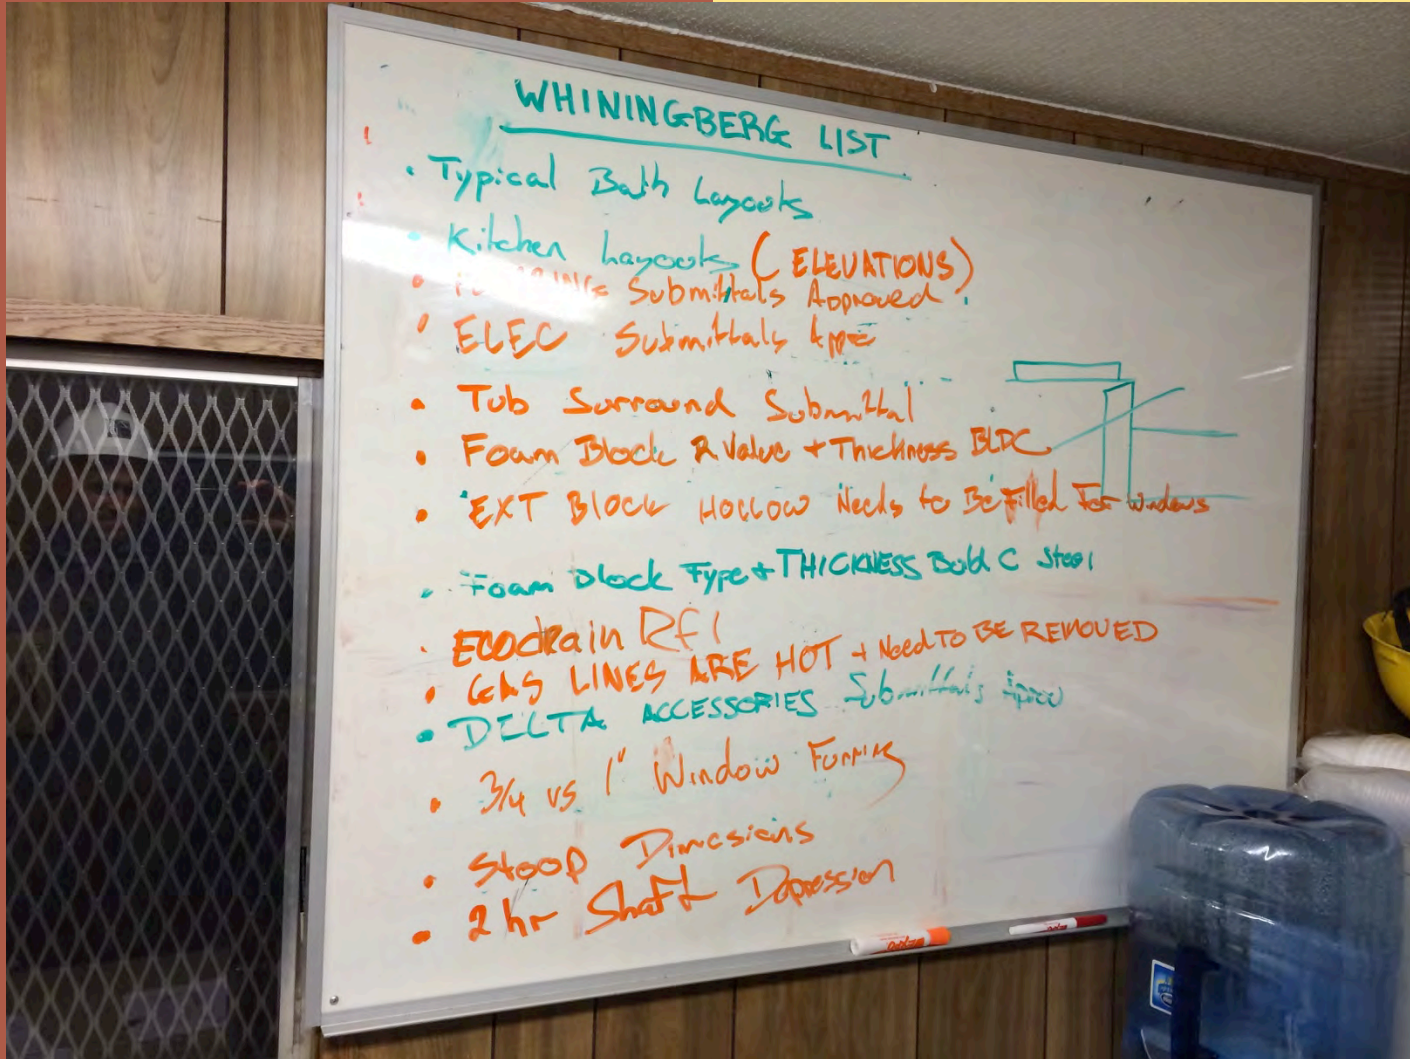 WHININGBERG LIST
• Typical Bath Layouts
• Kitchen Layouts (ELEVATIONS)
• Submittals Approved
• ELEC Submittals App
• Tub Surround Submittal
• Foam Block R Value + Thickness BLDC
• EXT BLOCK HOLLOW Needs to Be Filled For Windows
• Foam Block Type + THICKNESS Bold C Steel
• ECODrain RFI
• GAS LINES ARE HOT + Need TO BE REMOVED
• DELTA ACCESSORIES Submittals
• 3/4 vs 1" Window Furring
• Stoop Dimesions
• 2 hr Shaft Depression